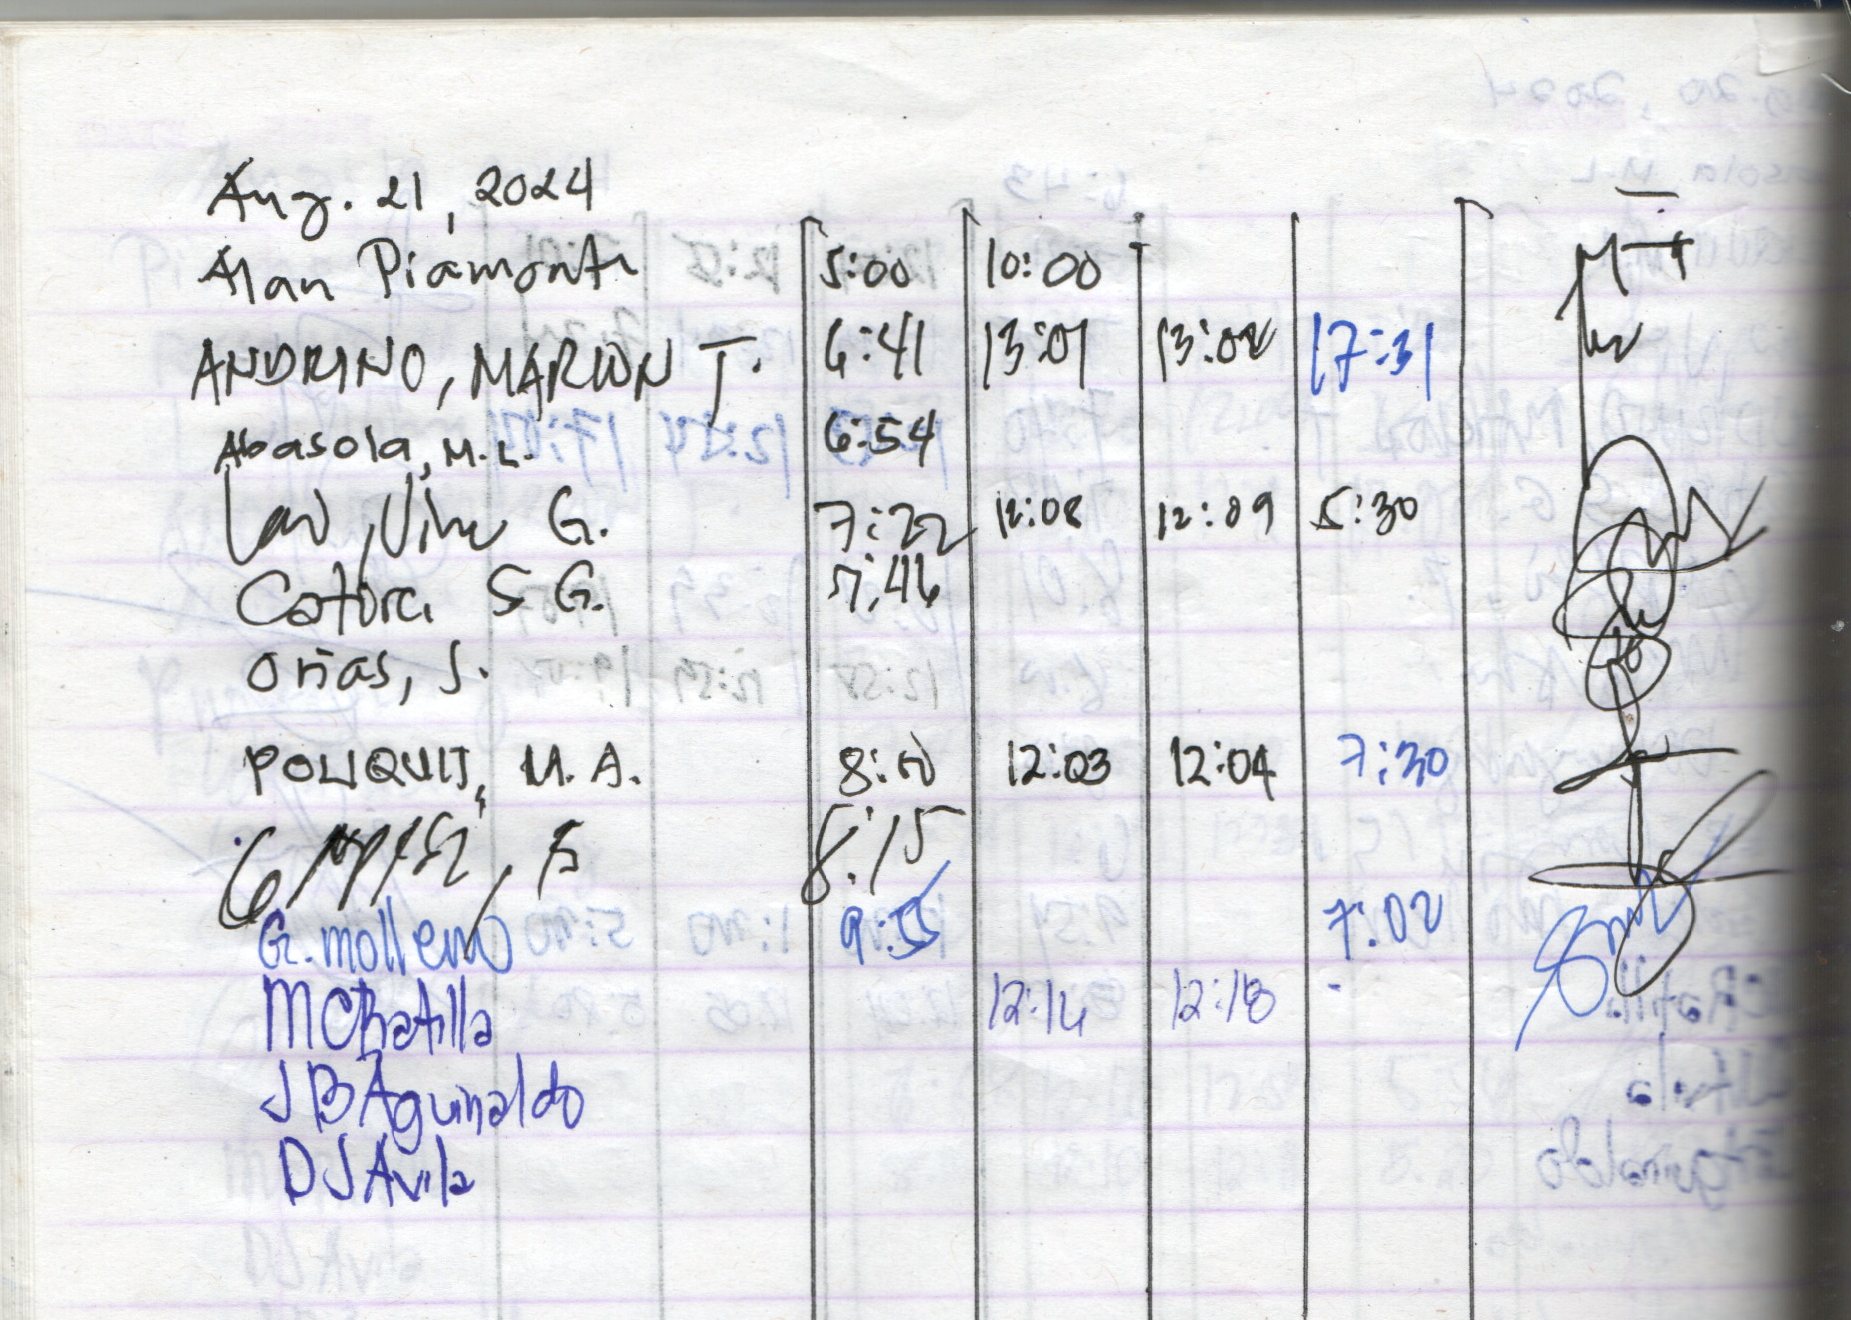 Aug. 21, 2024
Alan Piamonte 5:00 10:00
ANDRINO, MARION T. 6:41 13:01 13:02 17:31
Abasola, M.L. 6:54
G. 7:22 12:08 12:09 5:30
S G. 7:46
Orias, S.
POLIQUIT, M. A. 8:10 12:03 12:04 7:30
8:15
G. molleno 9:55 7:02
MCRatilla 12:16 12:18
JBAguinaldo
DJAvila